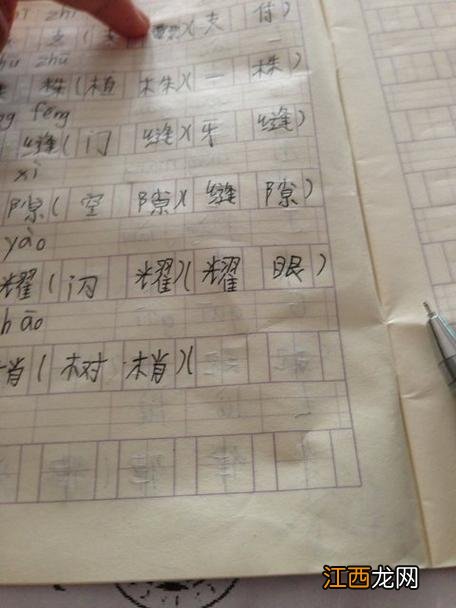 zhī
支(支 )(支 付)
zhū
株(植 株)(一 株)
fēng
缝(门 缝)(牙 缝)
xì
隙(空 隙)(缝 隙)
yào
耀(闪 耀)(耀 眼)
hāo
梢(树 梢)(
江西龙网